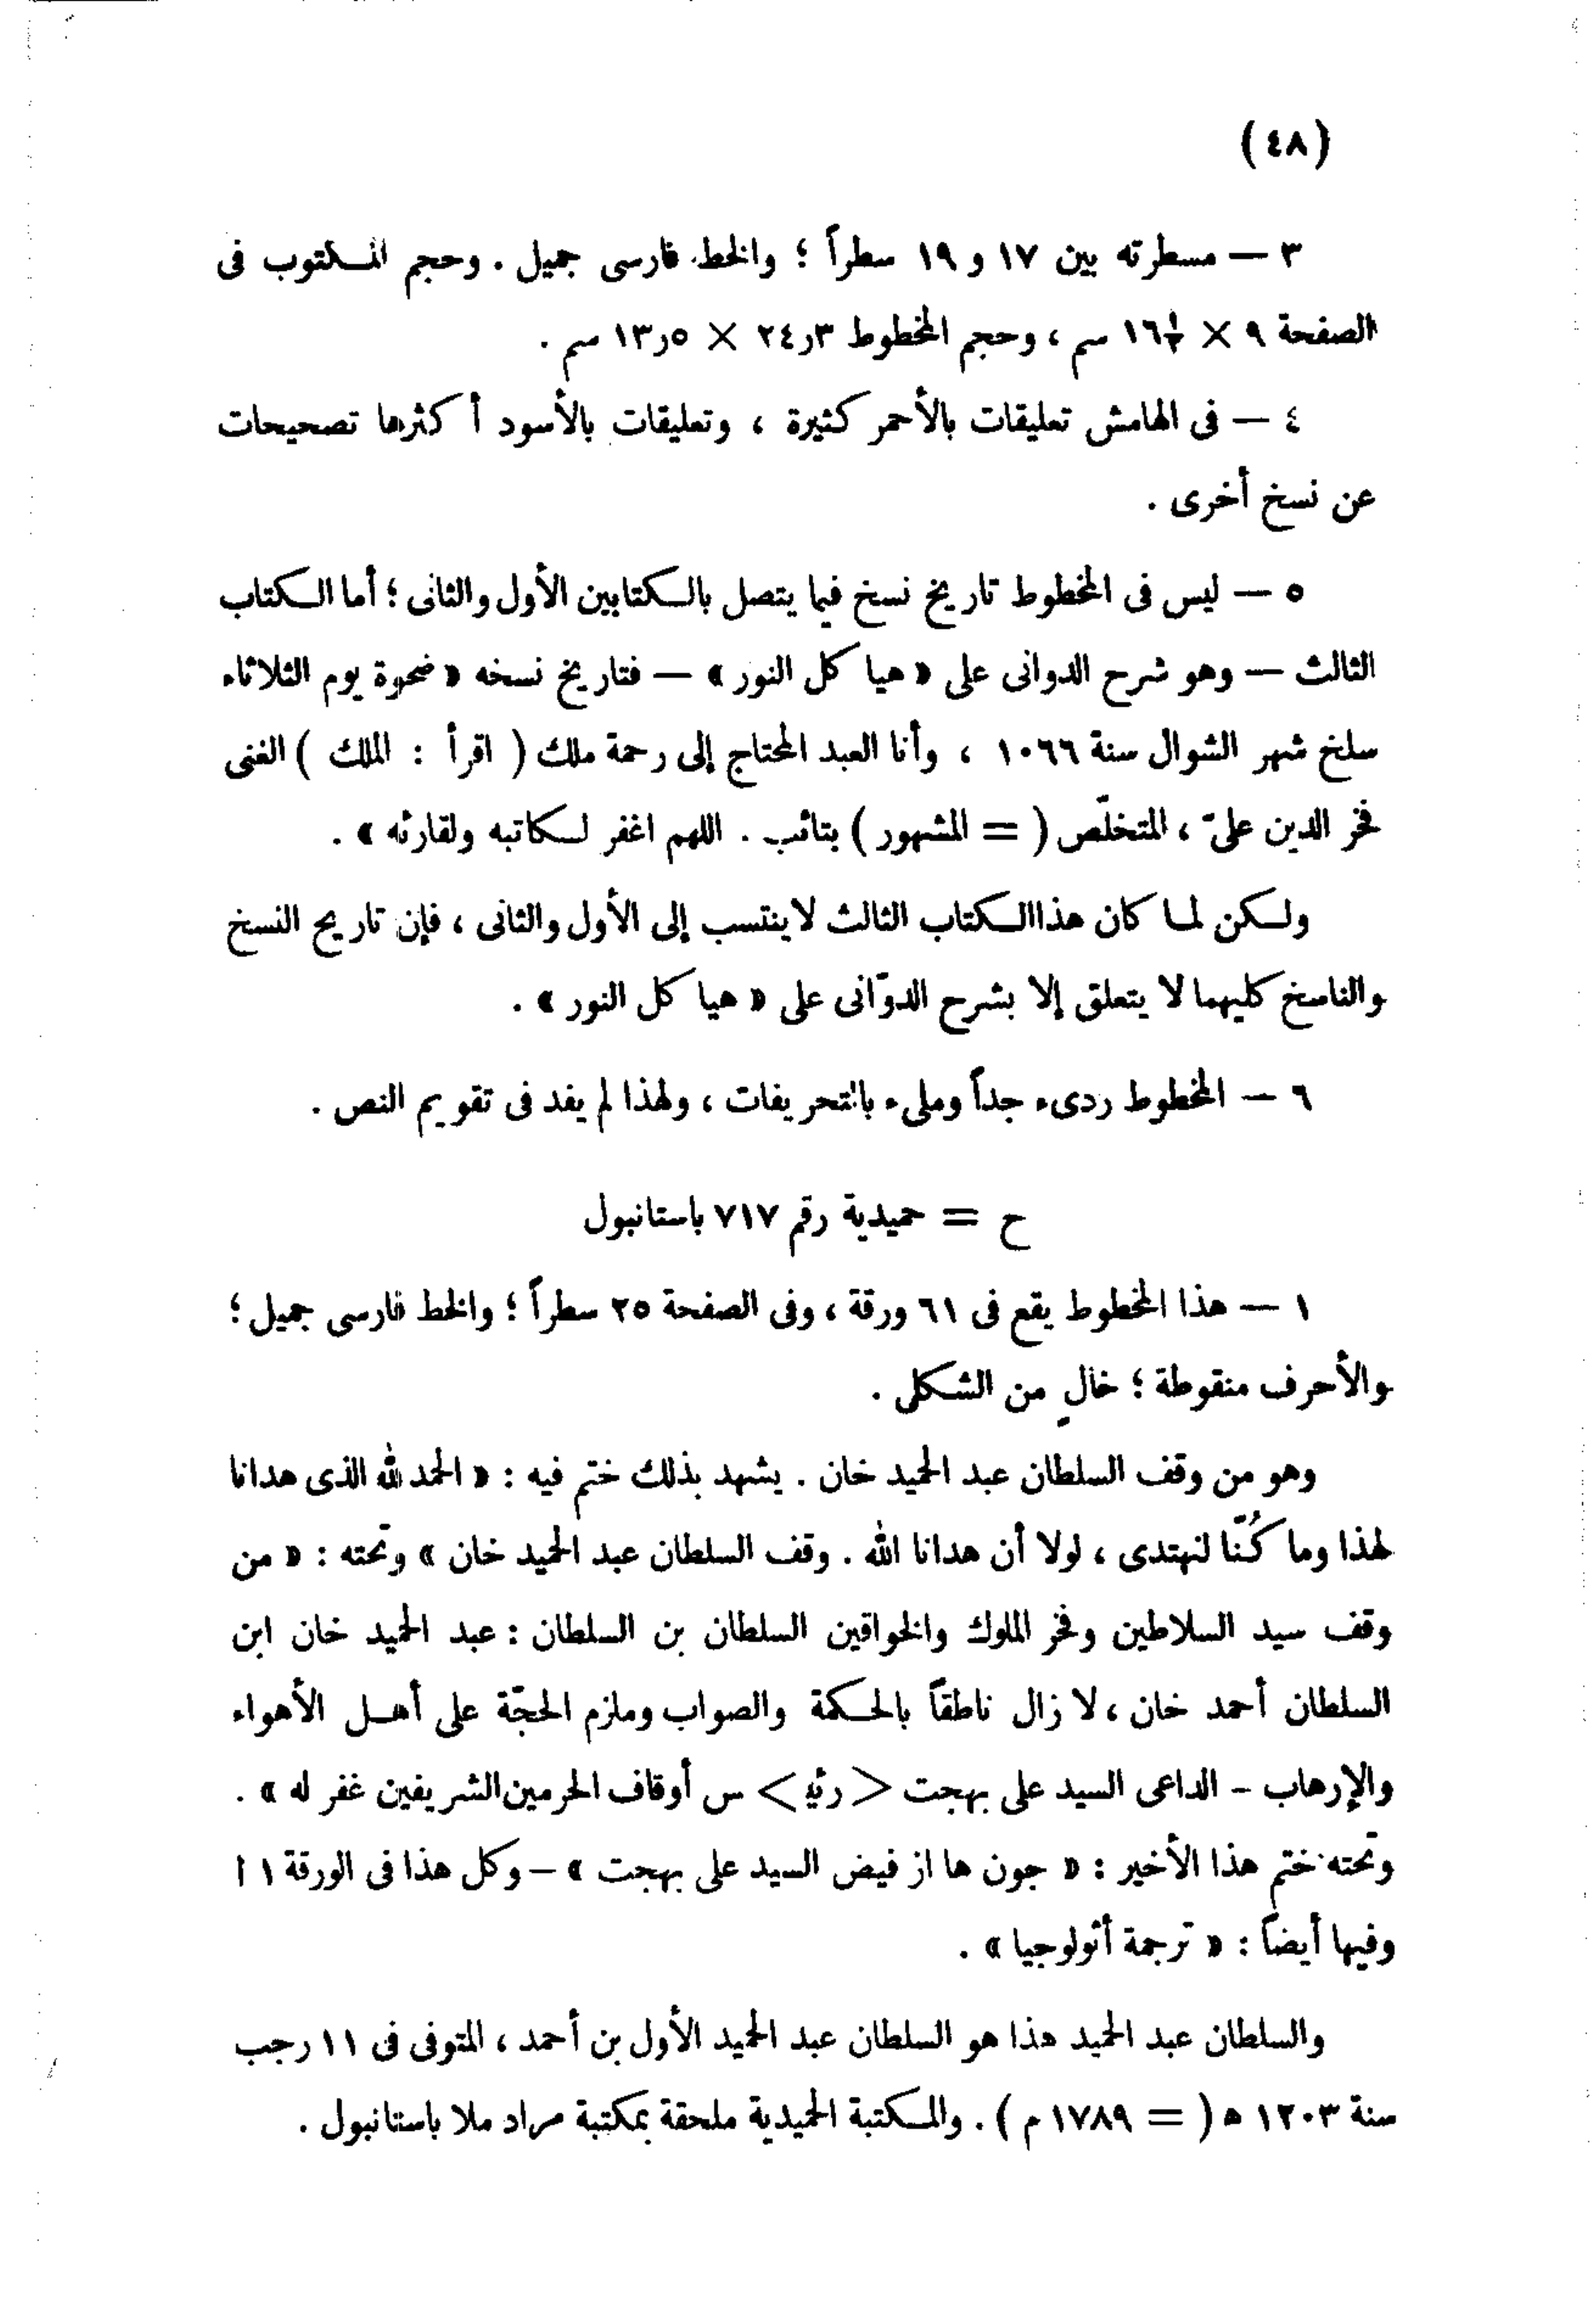 (٤٨)
٣ — مسطرته بين ١٧ و ١٩ سطراً ؛ والخط فارسى جميل . وحجم المكتوب فى
الصفحة ٩ × ١٦½ سم ، وحجم المخطوط ٢٤٫٣ × ١٣٫٥ سم .
٤ — فى الهامش تعليقات بالأحمر كثيرة ، وتعليقات بالأسود أكثرها تصحيحات
عن نسخ أخرى .
٥ — ليس فى المخطوط تاريخ نسخ فيما يتصل بالكتابين الأول والثانى ؛ أما الكتاب
الثالث — وهو شرح الدوانى على « هياكل النور » — فتاريخ نسخه « ضحوة يوم الثلاثاء
سلخ شهر الشوال سنة ١٠٦٦ ، وأنا العبد المحتاج إلى رحمة ملك ( اقرأ : الملك ) الغنى
فخر الدين علىّ ، المتخلّص ( = المشهور ) بتائب . اللهم اغفر لكاتبه ولقارئه » .
ولكن لما كان هذا الكتاب الثالث لا ينتسب إلى الأول والثانى ، فإن تاريح النسخ
والناسخ كليهما لا يتعلق إلا بشرح الدوّانى على « هياكل النور » .
٦ — المخطوط ردىء جداً وملىء بالتحريفات ، ولهذا لم يفد فى تقويم النص .
ح = حميدية رقم ٧١٧ باستانبول
١ — هذا المخطوط يقع فى ٦١ ورقة ، وفى الصفحة ٢٥ سطراً ؛ والخط فارسى جميل ؛
والأحرف منقوطة ؛ خالٍ من الشكل .
وهو من وقف السلطان عبد الحميد خان . يشهد بذلك ختم فيه : « الحمد لله الذى هدانا
لهذا وما كُنّا لنهتدى ، لولا أن هدانا الله . وقف السلطان عبد الحميد خان » وتحته : « من
وقف سيد السلاطين وفخر الملوك والخواقين السلطان بن السلطان : عبد الحميد خان ابن
السلطان أحمد خان ، لا زال ناطقاً بالحكمة والصواب وملزم الحجّة على أهل الأهواء
والإرهاب - الداعى السيد على بهجت < رئيـ > س أوقاف الحرمين الشريفين غفر له » .
وتحته ختم هذا الأخير : « جون ها از فيض السيد على بهجت » — وكل هذا فى الورقة ١ ا
وفيها أيضاً : « ترجمة أثولوجيا » .
والسلطان عبد الحميد هذا هو السلطان عبد الحميد الأول بن أحمد ، المتوفى فى ١١ رجب
سنة ١٢٠٣ ه ( = ١٧٨٩ م ) . والمكتبة الحميدية ملحقة بمكتبة مراد ملا باستانبول .